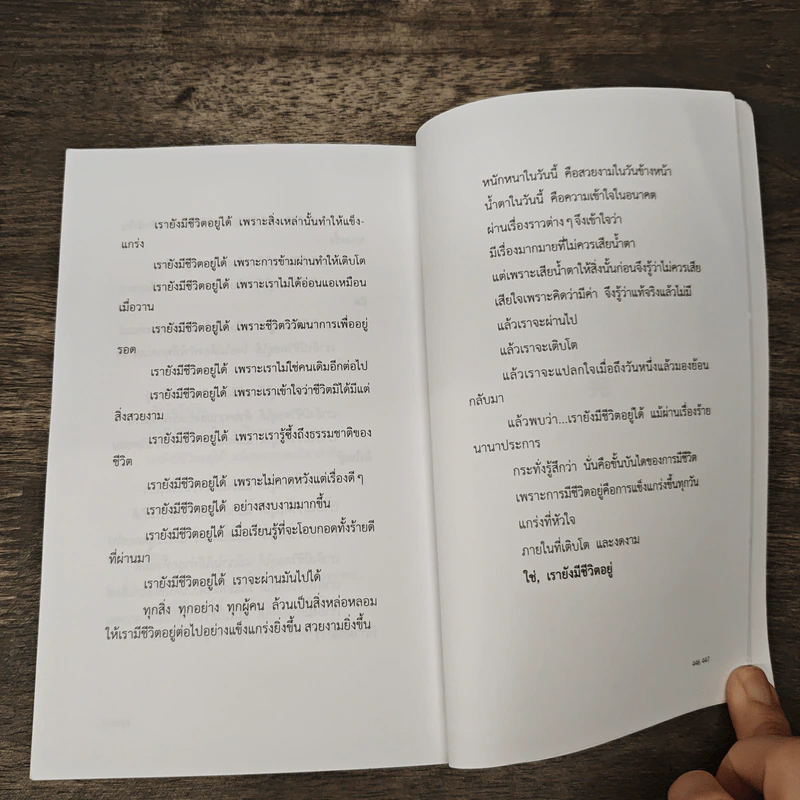 เรายังมีชีวิตอยู่ได้ เพราะสิ่งเหล่านั้นทำให้แข็ง-
แกร่ง
เรายังมีชีวิตอยู่ได้ เพราะการข้ามผ่านทำให้เติบโต
เรายังมีชีวิตอยู่ได้ เพราะเราไม่ได้อ่อนแอเหมือน
เมื่อวาน
เรายังมีชีวิตอยู่ได้ เพราะชีวิตวิวัฒนาการเพื่ออยู่
รอด
เรายังมีชีวิตอยู่ได้ เพราะเราไม่ใช่คนเดิมอีกต่อไป
เรายังมีชีวิตอยู่ได้ เพราะเราเข้าใจว่าชีวิตมิได้มีแต่
สิ่งสวยงาม
เรายังมีชีวิตอยู่ได้ เพราะเรารู้ซึ้งถึงธรรมชาติของ
ชีวิต
เรายังมีชีวิตอยู่ได้ เพราะไม่คาดหวังแต่เรื่องดี ๆ
เรายังมีชีวิตอยู่ได้ อย่างสงบงามมากขึ้น
เรายังมีชีวิตอยู่ได้ เมื่อเรียนรู้ที่จะโอบกอดทั้งร้ายดี
ที่ผ่านมา
เรายังมีชีวิตอยู่ได้ เราจะผ่านมันไปได้
ทุกสิ่ง ทุกอย่าง ทุกผู้คน ล้วนเป็นสิ่งหล่อหลอม
ให้เรามีชีวิตอยู่ต่อไปอย่างแข็งแกร่งยิ่งขึ้น สวยงามยิ่งขึ้น
หนักหนาในวันนี้ คือสวยงามในวันข้างหน้า
น้ำตาในวันนี้ คือความเข้าใจในอนาคต
ผ่านเรื่องราวต่าง ๆ จึงเข้าใจว่า
มีเรื่องมากมายที่ไม่ควรเสียน้ำตา
แต่เพราะเสียน้ำตาให้สิ่งนั้นก่อนจึงรู้ว่าไม่ควรเสีย
เสียใจเพราะคิดว่ามีค่า จึงรู้ว่าแท้จริงแล้วไม่มี
แล้วเราจะผ่านไป
แล้วเราจะเติบโต
แล้วเราจะแปลกใจเมื่อถึงวันหนึ่งแล้วมองย้อน
กลับมา
แล้วพบว่า...เรายังมีชีวิตอยู่ได้ แม้ผ่านเรื่องร้าย
นานาประการ
กระทั่งรู้สึกว่า นั่นคือขั้นบันไดของการมีชีวิต
เพราะการมีชีวิตอยู่คือการแข็งแกร่งขึ้นทุกวัน
แกร่งที่หัวใจ
ภายในที่เติบโต และงดงาม
ใช่, เรายังมีชีวิตอยู่
446, 447